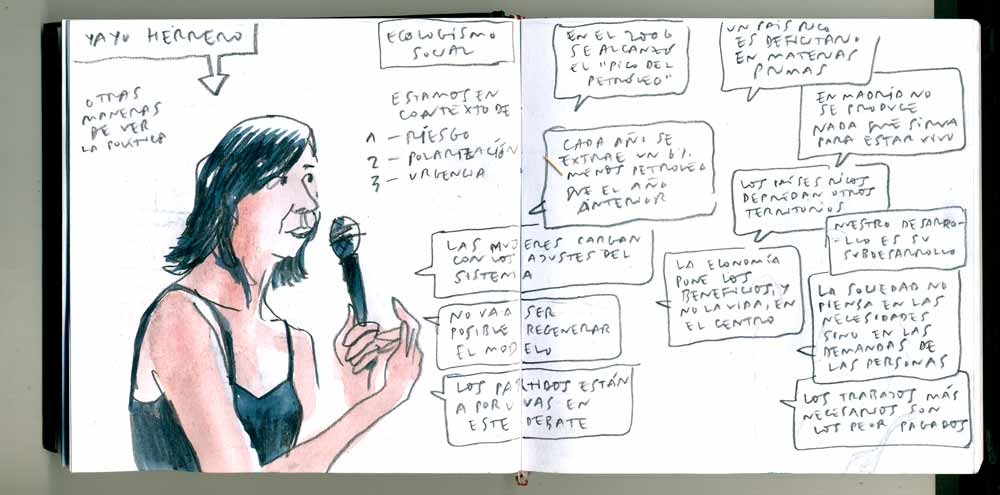 YAYO HERRERO
OTRAS
MANERAS
DE VER
LA POLÍTICA
ECOLOGISMO
SOCIAL
ESTAMOS EN
CONTEXTO DE
1 – RIESGO
2 – POLARIZACIÓN
3 – URGENCIA
LAS MUJERES CARGAN
CON LOS AJUSTES DEL
SISTEMA
NO VA A SER
POSIBLE REGENERAR
EL MODELO
LOS PARTIDOS ESTÁN
A POR UVAS EN
ESTE DEBATE
EN EL 2006
SE ALCANZÓ
EL "PICO DEL
PETRÓLEO"
CADA AÑO SE
EXTRAE UN 6%
MENOS PETRÓLEO
QUE EL AÑO
ANTERIOR
UN PAÍS RICO
ES DEFICITARIO
EN MATERIAS
PRIMAS
EN MADRID NO
SE PRODUCE
NADA QUE SIRVA
PARA ESTAR VIVO
LOS PAÍSES RICOS
DEPREDAN OTROS
TERRITORIOS
NUESTRO DESARRO-
-LLO ES SU
SUBDESARROLLO
LA ECONOMÍA
PONE LOS
BENEFICIOS, Y
NO LA VIDA, EN
EL CENTRO
LA SOCIEDAD NO
PIENSA EN LAS
NECESIDADES
SINO EN LAS
DEMANDAS DE
LAS PERSONAS
LOS TRABAJOS MÁS
NECESARIOS SON
LOS PEOR PAGADOS